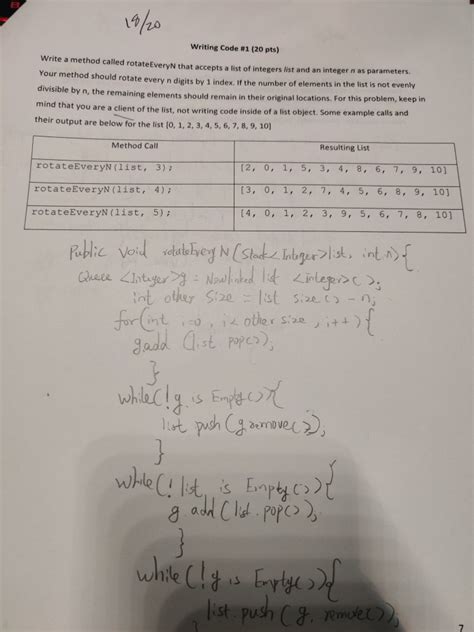 18/20
Writing Code #1 (20 pts)
Write a method called rotateEveryN that accepts a list of integers list and an integer n as parameters.
Your method should rotate every n digits by 1 index. If the number of elements in the list is not evenly
divisible by n, the remaining elements should remain in their original locations. For this problem, keep in
mind that you are a client of the list, not writing code inside of a list object. Some example calls and
their output are below for the list [0, 1, 2, 3, 4, 5, 6, 7, 8, 9, 10]
Method Call Resulting List
rotateEveryN(list, 3); [2, 0, 1, 5, 3, 4, 8, 6, 7, 9, 10]
rotateEveryN(list, 4); [3, 0, 1, 2, 7, 4, 5, 6, 8, 9, 10]
rotateEveryN(list, 5); [4, 0, 1, 2, 3, 9, 5, 6, 7, 8, 10]
Public void rotateEvery N (Stack< Integer>list, int n){
Queue <Integer>g = New linked list <integer>( );
int other Size = list size( ) - n;
for(int i=0, i< other size, i++){
g.add (list pop( ));
}
while(!g is Empty( )){
list push (g remove( ));
}
while(! list is Empty( )){
g.add (list.pop( ));
}
while(!g is Empty( )){
list.push (g, remove( ));
7